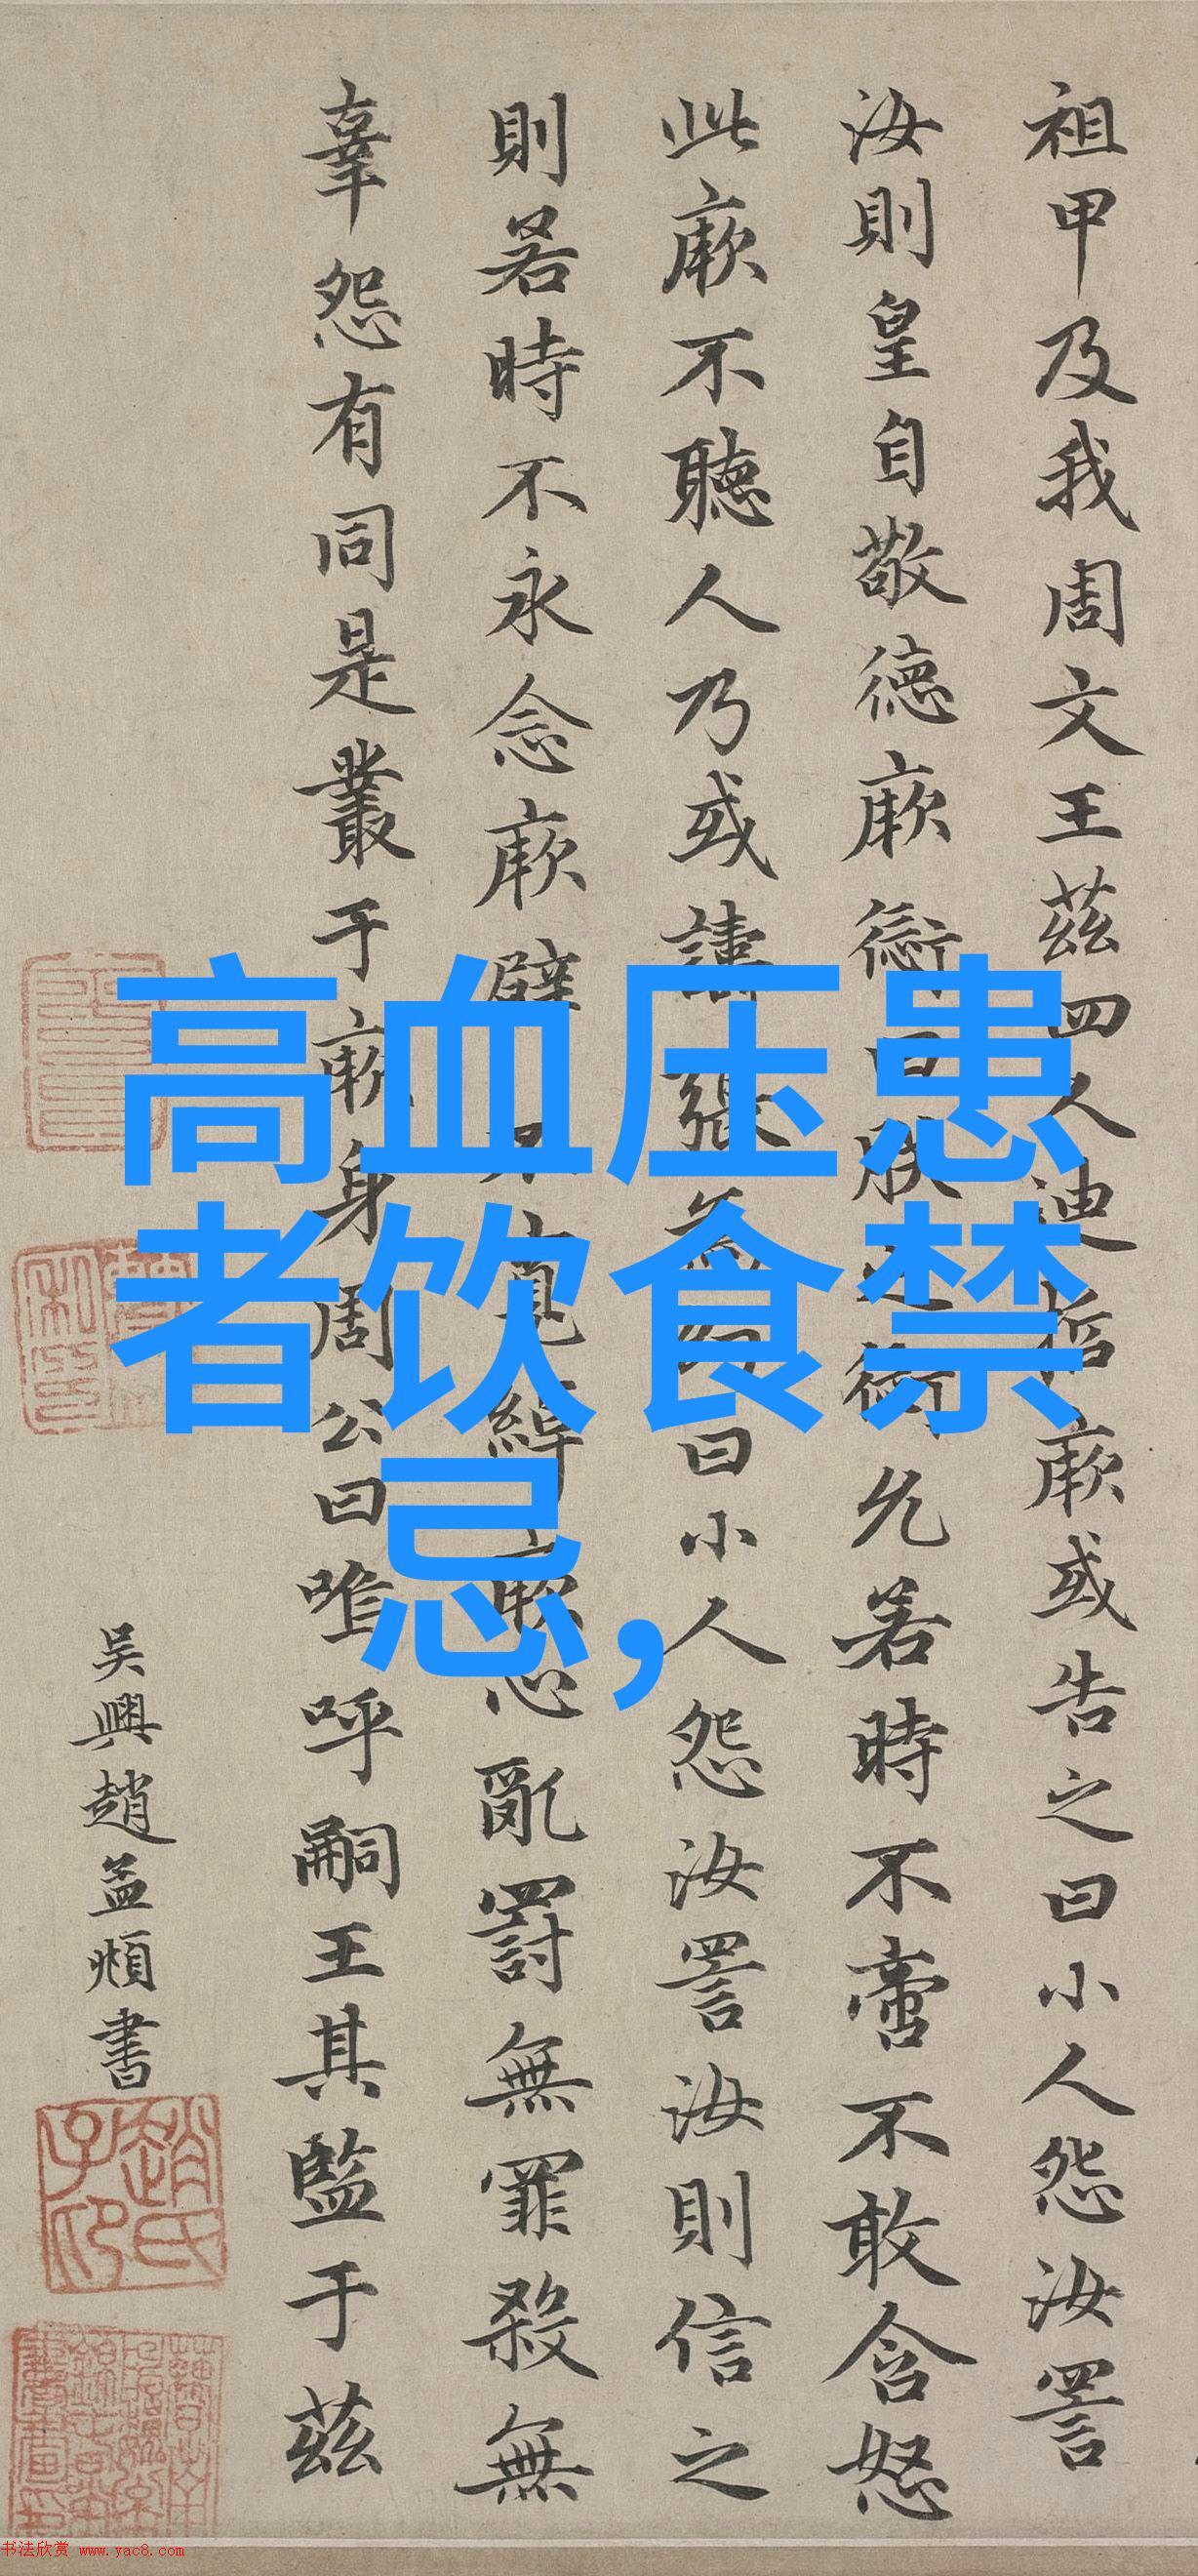 祖甲及我周文王茲四人迪哲厥或告之曰小人怨汝詈
汝則皇自敬德厥愆曰朕之愆允若時不啻不敢含怒
此厥不聽人乃或譸張為幻曰小人怨汝詈汝則信之
則若時不永念厥辟不寬綽厥心亂罰無罪殺無
辜怨有同是叢于厥身周公曰唯呼嗣王其監于茲
吳興趙孟頫書
趙氏子昂
高血压患
者饮食禁
忌,
书法欣赏 www.yac8.com